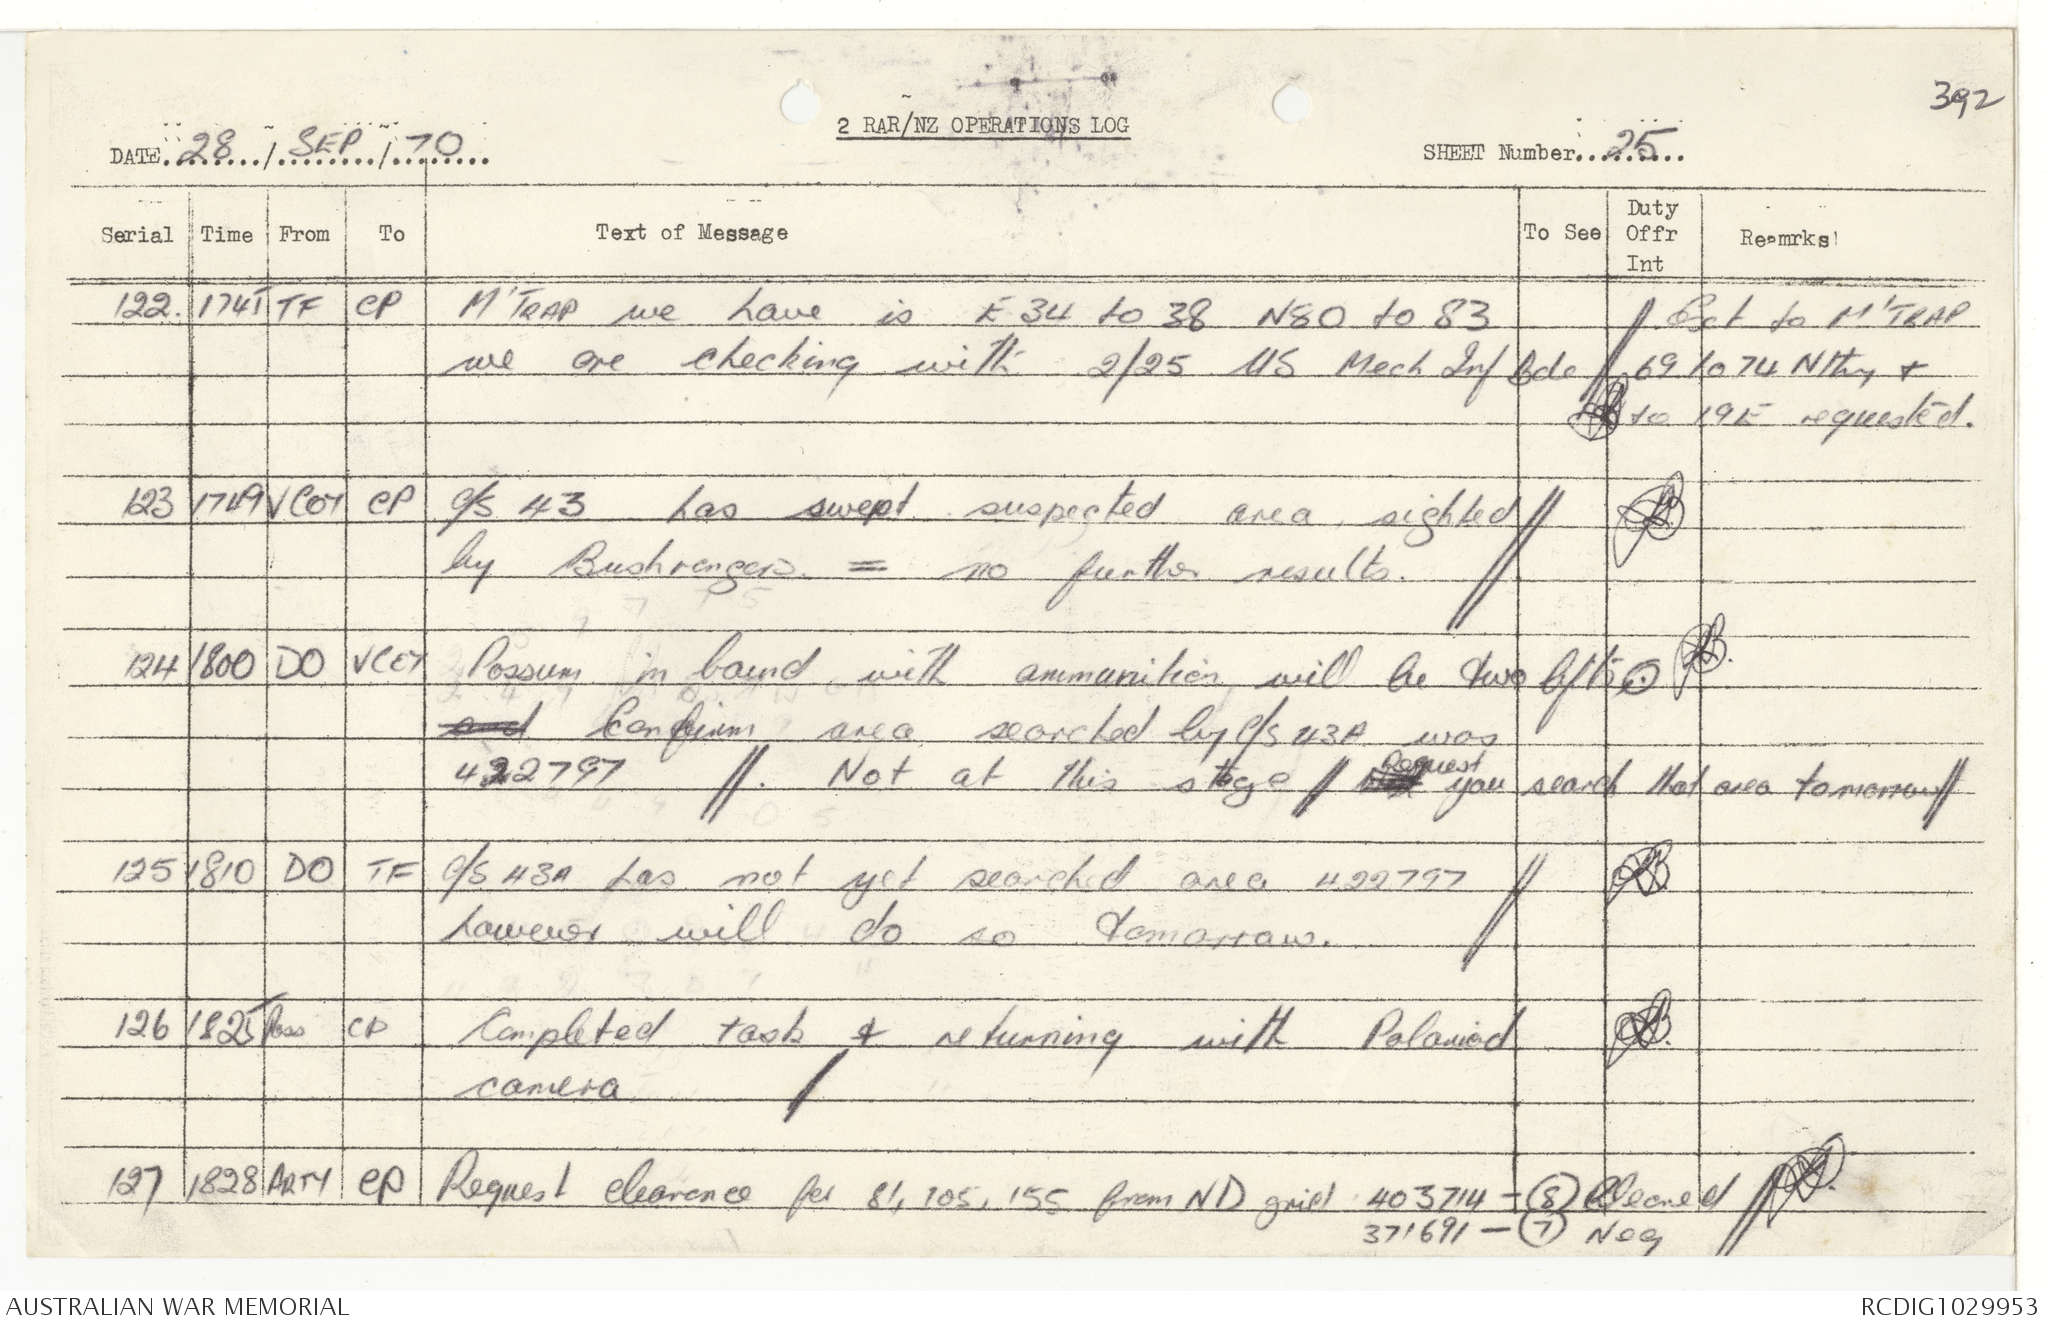 392
2 RAR/NZ OPERATIONS LOG
DATE 28 / SEP / 70
SHEET Number 25
Serial Time From To Text of Message To See Duty Offr Int Reamrks
122. 1741 TF CP M'TRAP we have is E 34 to 38 N80 to 83 // Ext to M'TRAP
we are checking with 2/25 US Mech Inf Bde 69 to 74 Nthg +
to 19E requested.
123 1749 VCOY CP C/S 43 has swept suspected area sighted //
by Bushrangers. = no further results.
124 1800 DO VCOY Possum in bound with ammunition will be two lifts.
and Confirm area searched by C/S 43A was
422797 //. Not at this stage // Request you search that area tomorrow //
125 1810 DO TF C/S 43A has not yet searched area 422797 //
however will do so tomorrow.
126 1825 Poss CP Completed task & returning with Polaroid
camera /
127 1828 ARTY CP Request clearance for 81, 105, 155 from ND grid 403714 - (8) Cleared //
371691 - (7) Neg
AUSTRALIAN WAR MEMORIAL
RCDIG1029953